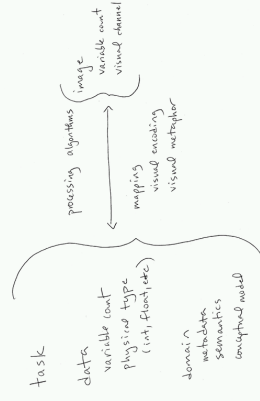 task
data
variable count
physical type
(int, float, etc)
domain
metadata
semantics
conceptual model
processing algorithms
mapping
visual encoding
visual metaphor
image
variable count
visual channel